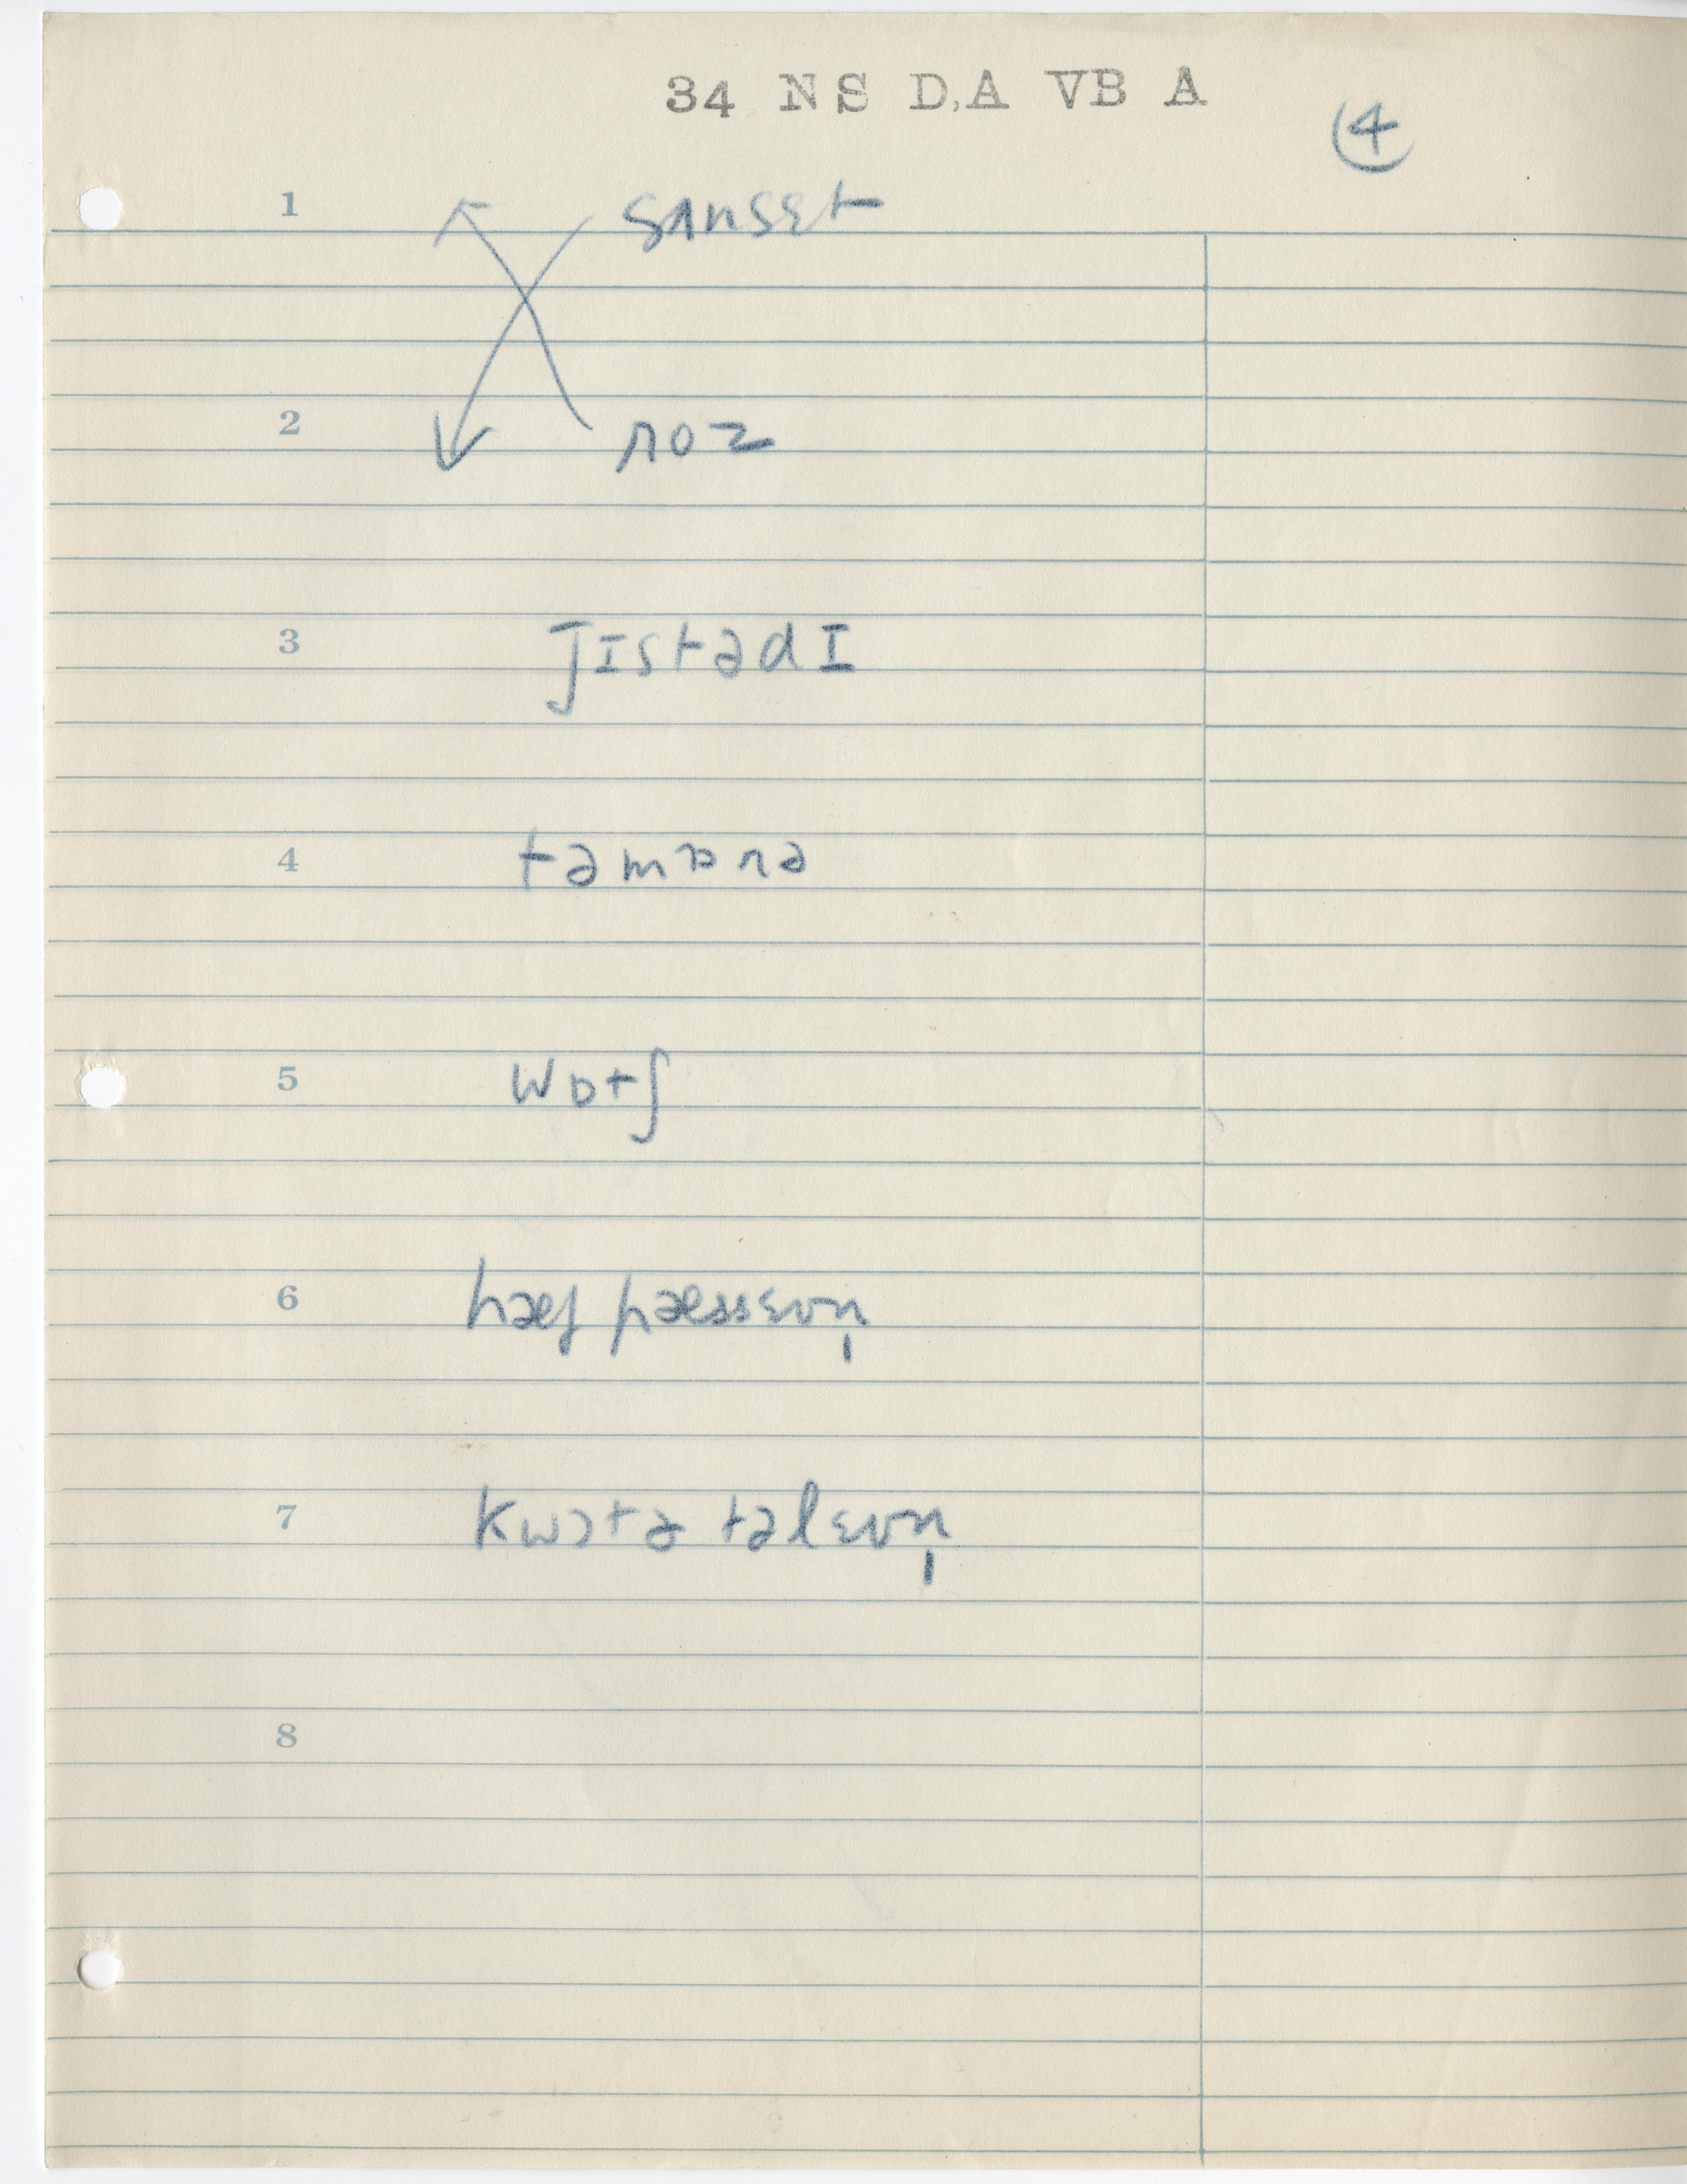 34 NS D,A VB A
④
1 sʌnsɛt
2 roz
3 jɪstədɪ
4 təmɒrə
5 wɒtʃ
6 hæf pæssɛvn̩
7 kwɔtə təlɛvn̩
8